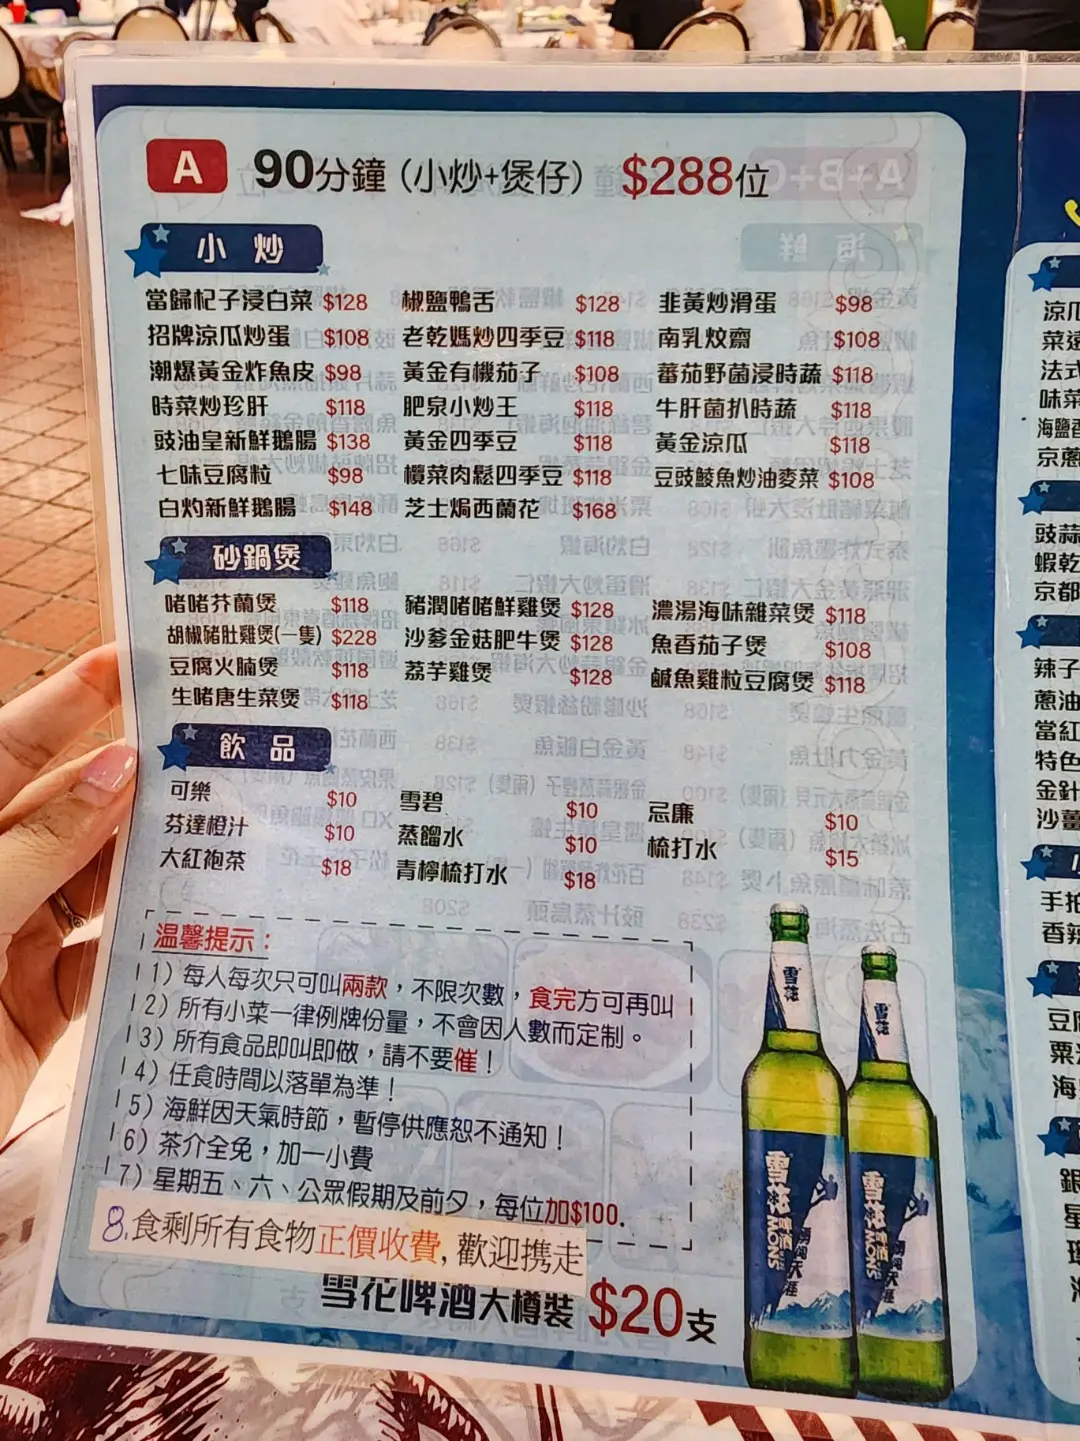 A 90分鐘（小炒+煲仔） $288位
小炒
當歸杞子浸白菜 $128 椒鹽鴨舌 $128 韭黃炒滑蛋 $98
招牌涼瓜炒蛋 $108 老乾媽炒四季豆 $118 南乳炆齋 $108
潮爆黃金炸魚皮 $98 黃金有機茄子 $108 蕃茄野菌浸時蔬 $118
時菜炒珍肝 $118 肥泉小炒王 $118 牛肝菌扒時蔬 $118
豉油皇新鮮鵝腸 $138 黃金四季豆 $118 黃金涼瓜 $118
七味豆腐粒 $98 欖菜肉鬆四季豆 $118 豆豉鯪魚炒油麥菜 $108
白灼新鮮鵝腸 $148 芝士焗西蘭花 $168
砂鍋煲
啫啫芥蘭煲 $118 豬潤啫啫鮮雞煲 $128 濃湯海味雜菜煲 $118
胡椒豬肚雞煲(一隻) $228 沙爹金菇肥牛煲 $128 魚香茄子煲 $108
豆腐火腩煲 $118 荔芋雞煲 $128 鹹魚雞粒豆腐煲 $118
生啫唐生菜煲 $118
飲品
可樂 $10 雪碧 $10 忌廉 $10
芬達橙汁 $10 蒸餾水 $10 梳打水 $15
大紅袍茶 $18 青檸梳打水 $18
溫馨提示：
1）每人每次只可叫兩款，不限次數，食完方可再叫
2）所有小菜一律例牌份量，不會因人數而定制。
3）所有食品即叫即做，請不要催！
4）任食時間以落單為準！
5）海鮮因天氣時節，暫停供應恕不通知！
6）茶介全免，加一小費
7）星期五、六、公眾假期及前夕，每位加$100.
8.食剩所有食物正價收費, 歡迎携走
雪花啤酒大樽裝 $20支
雪花
雪花
勇闖天涯
勇闖天涯
涼瓜
法式
味菜
海鹽香
京蔥
豉蒜
蝦乾
京都
辣子
蔥油
當紅
特色
金針
沙薑
手拍
香辣